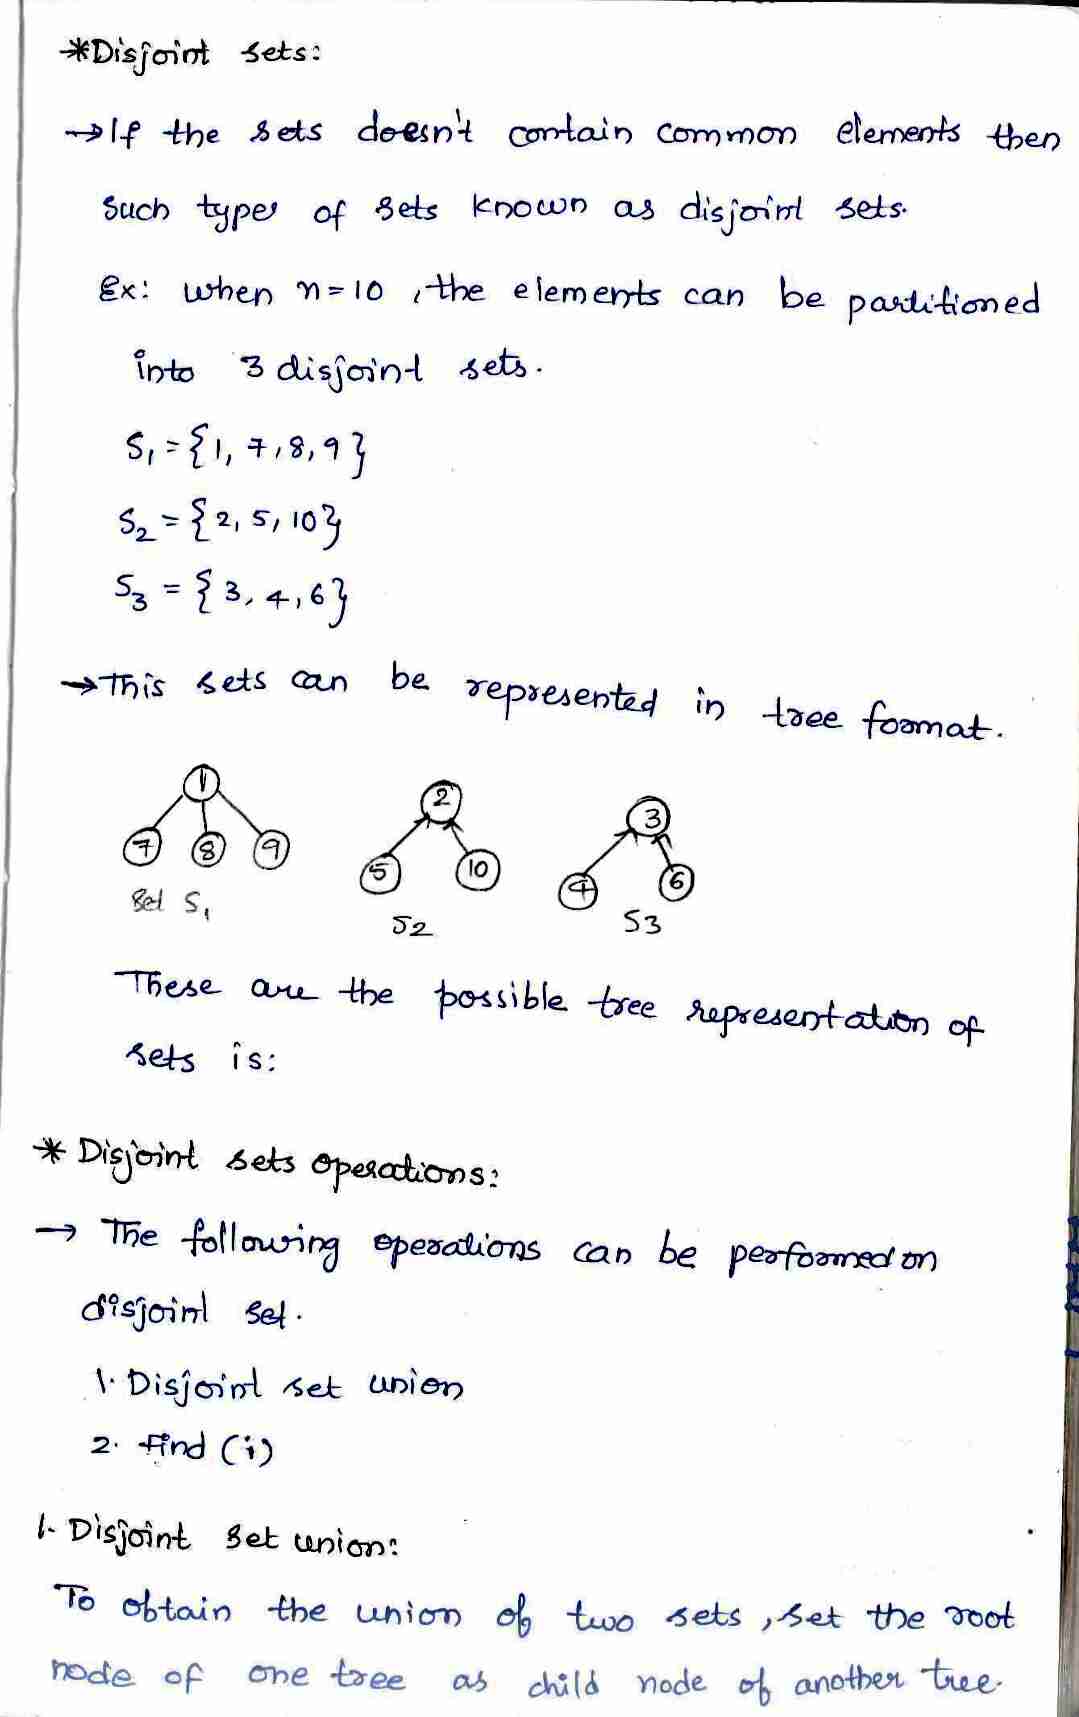 *Disjoint sets:
→If the sets doesn't contain common elements then
such types of sets known as disjoint sets.
Ex: when n=10, the elements can be partitioned
into 3 disjoint sets.
S₁ = {1, 7, 8, 9}
S₂ = {2, 5, 10}
S₃ = {3, 4, 6}
→This sets can be represented in tree format.
1 2 3
7 8 9 5 10 4 6
Set S₁ S2 S3
These are the possible tree representation of
sets is:
* Disjoint sets operations:
→ The following operations can be performed on
disjoint set.
1. Disjoint set union
2. Find (i)
1. Disjoint set union:
To obtain the union of two sets, set the root
node of one tree as child node of another tree.